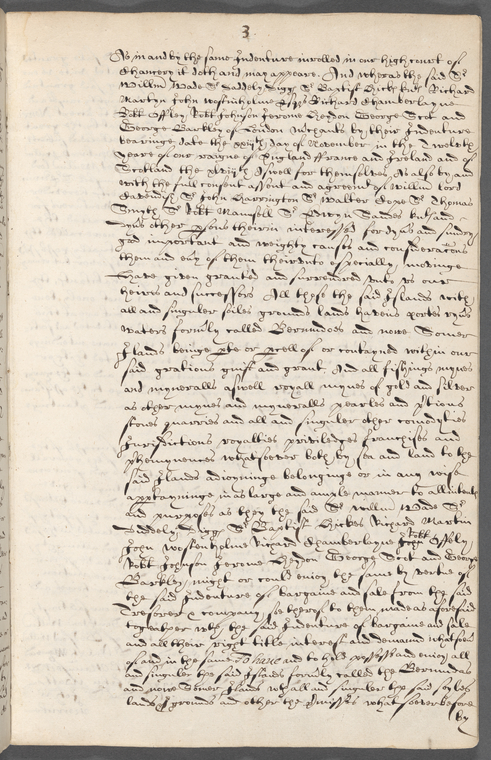 3
As in and by the same Indenture inrolled in our high court of
Chancery it doth and may appeare. And whereas the said Sr
Willm Wade Sr Duddely Diggs Sr Baptist Hicks Richard
Martyn John Wostenholme Richard Chamberlayne
Robt Offley Robt Johnson Jerome Heydon George Scot and
George Barkley of London Merchants by their Indenture
bearinge date the day of November in the Twelfth
yeare of our raigne of England ffrance and Ireland and of
Scotland the Aswell for themselves As also by and
with the full consent assent and agreemt of Willm lord
Cavendish Sr John Harrington Sr Walter Cope Sr Thomas
Smyth Sr Robt Mansfell Sr Edwyn Sandes
other persons therein interessed for dyvers and sundry
good important and weighty causes and consideracons
them and every of them thereunto especially movinge
Have given graunted and surrendred unto us our
heires and successors All those the said Islands with
all and singuler soiles grounds lands havens portes ryvers
waters formerly called Bermudoes and nowe Somer
Ilands beinge pte or pcell of or contayned within our
said gratious guift and grant. And all fishings mynes
and myneralls aswell royall mynes of gold and silver
as other mynes and myneralls pearles and ptious
stones quarries and all and singuler other comodities
Jurisdictions royalties priviledges franchises and
preheminences whatsoever both by sea and land to the
said Ilands adioyninge belonginge or in any wise
apptayninge in as large and ample manner to all intents
and purposes as they the said Sr Willm Wade Sr
Duddely Diggs Sr Baptist Hickes Richard Martin
John Wostenholme Richard Chamberlayne Robt Offley
Robt Johnson Jerome Heydon George Scot and George
Barkley might or could enioy the same by vertue of
the said Indenture of bargaine and sale from the said
Tresorer & company thereof to them made as aforesaid
together wth the said Indenture of bargaine and sale
and all their right title interest and demaund whatsoever
of and in the same To have and to hold possesse and enioy all
and singuler the said Islands formerly called the Bermudas
and nowe Somer Ilands wth all and singuler the said soyles
lands grounds and other the premisses whatsoever before
by